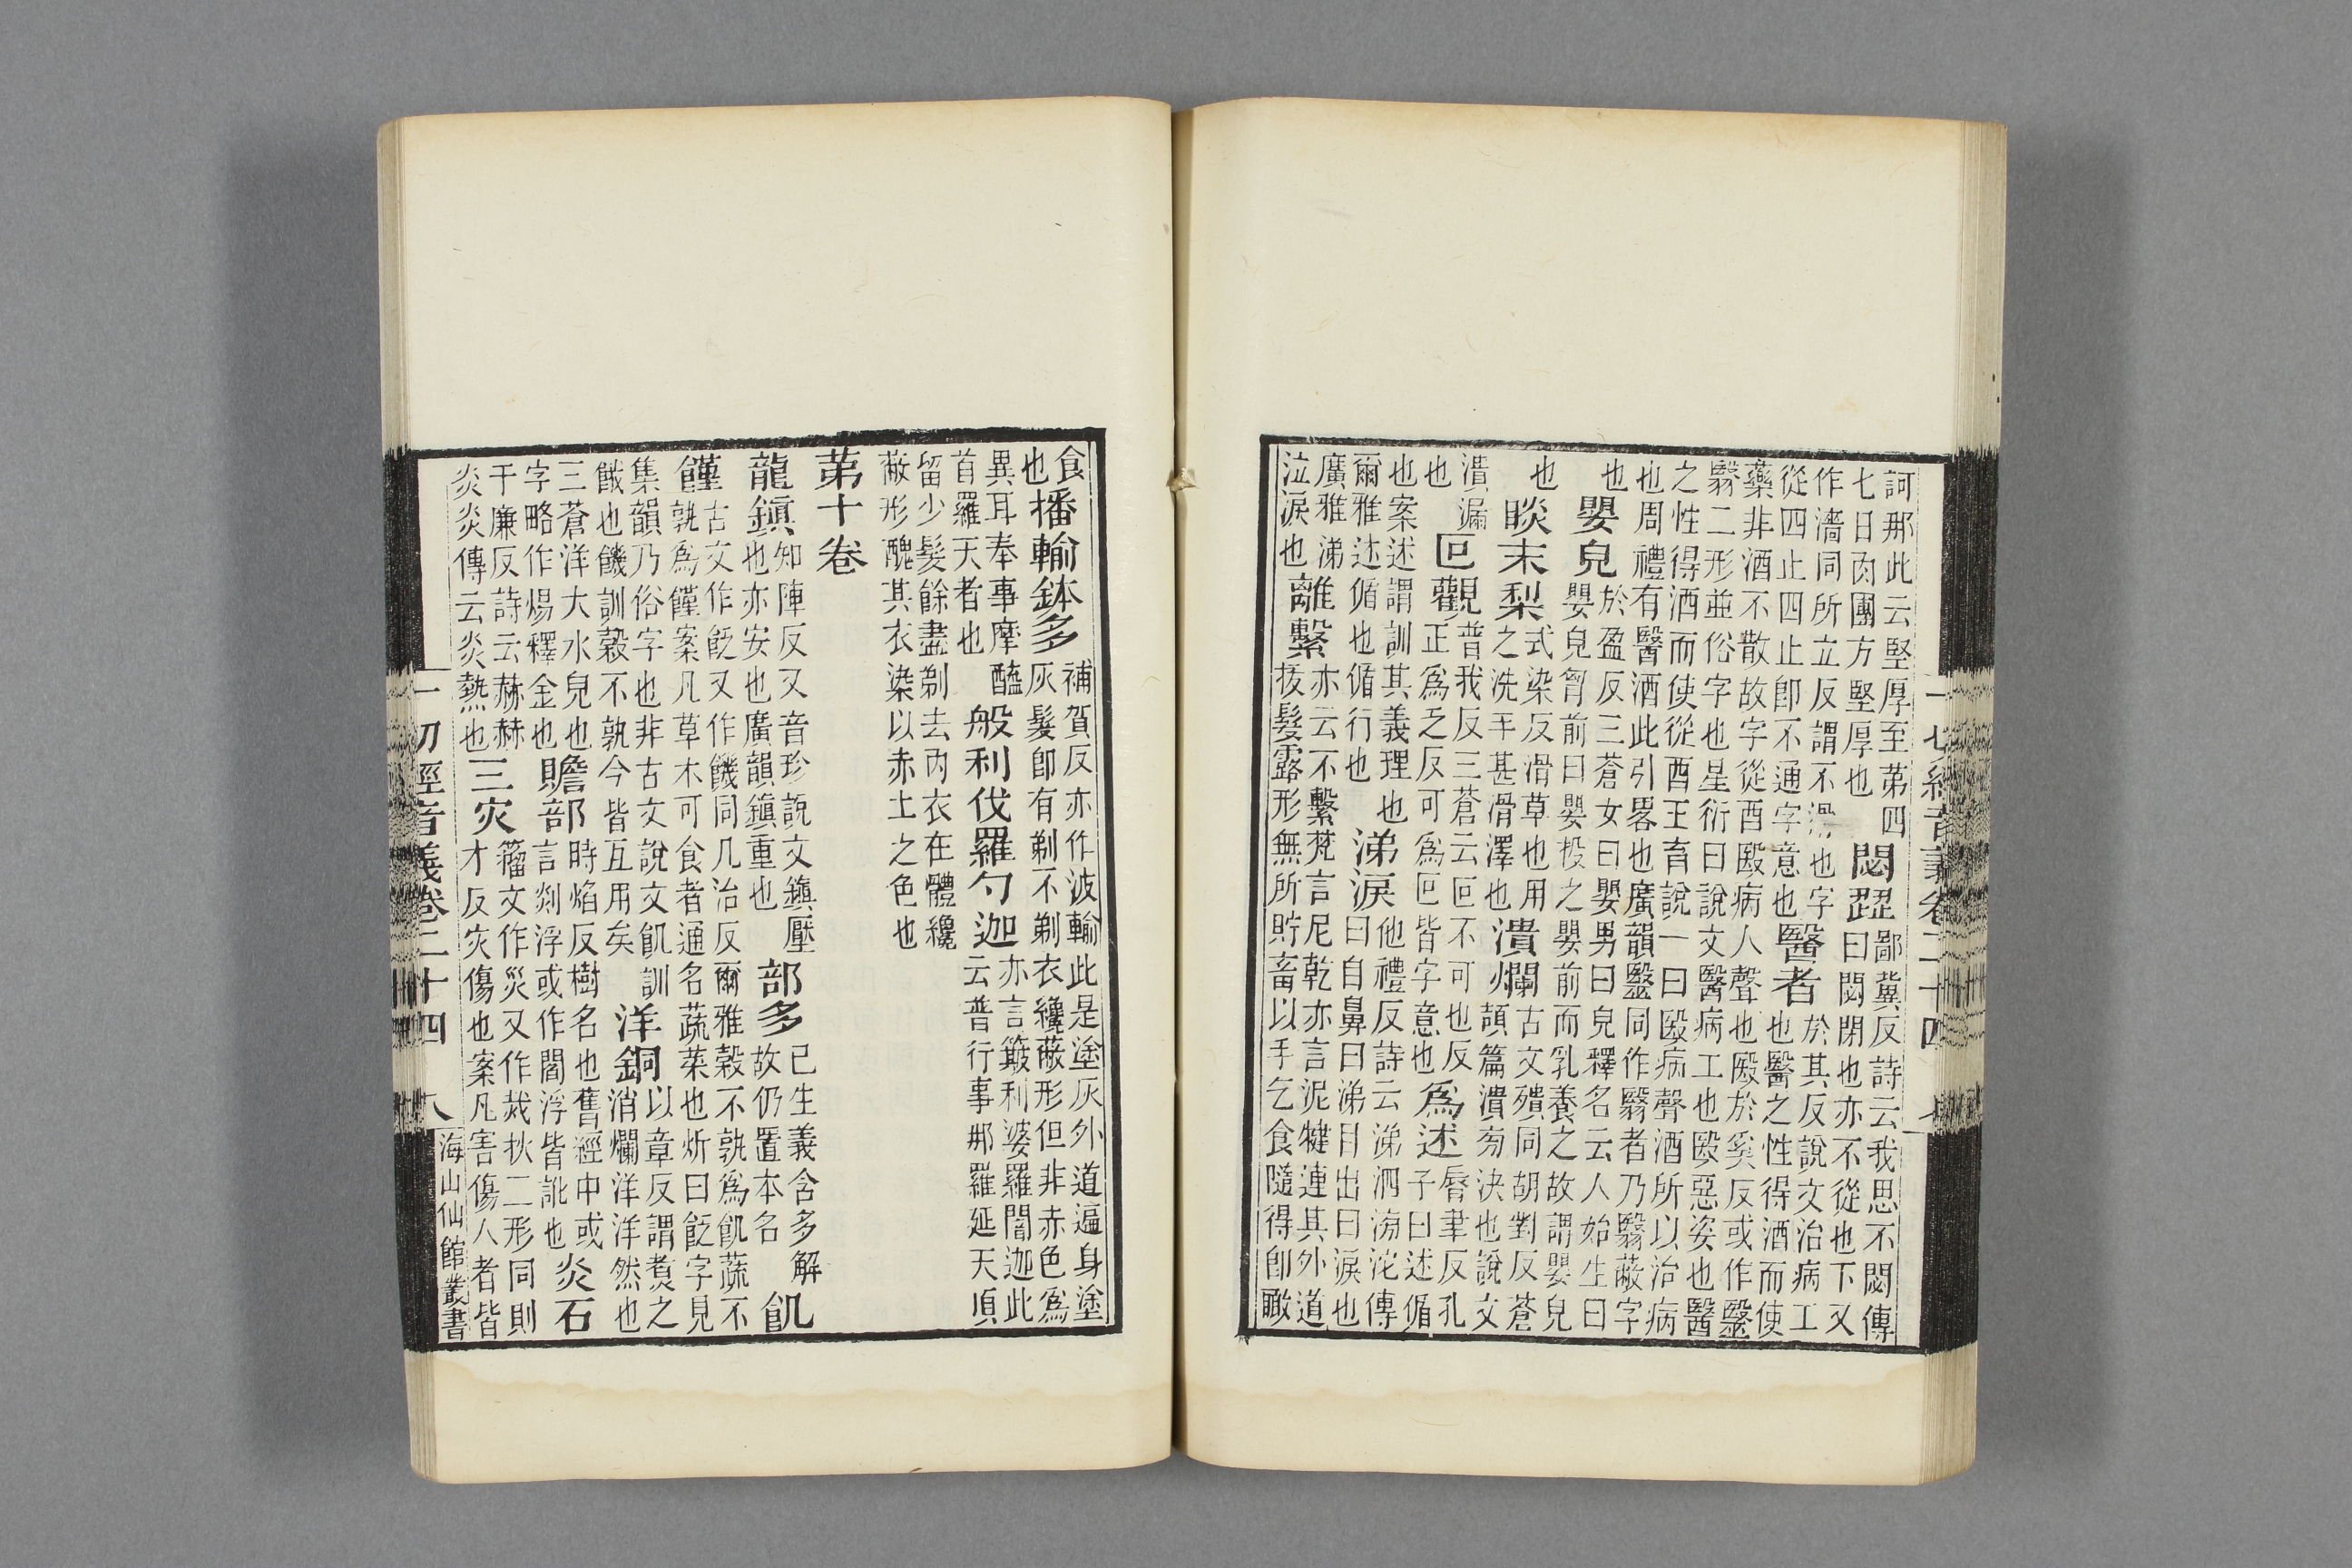 訶那此云堅厚至苐四
七日肉團方堅厚也
悶䛗
鄙冀反詩云我思不閟傳
曰閟閉也亦不從也下又
作濇同所立反謂不滑也字
從四止四止卽不通字意也
醫者
於其反說文治病工
也醫之性得酒而使
藥非酒不散故字從酉殹病人聲也殹於奚反或作毉
翳二形並俗字也星衍曰說文醫病工也殹惡姿也醫
之性得酒而使從酉王育說一曰殹病聲酒所以治病
也周禮有醫酒此引畧也廣韻毉同作翳者乃翳蔽字
也
嬰兒
於盈反三蒼女曰嬰男曰兒釋名云人始生曰
嬰兒胷前曰嬰投之嬰前而乳養之故謂嬰兒
也
睒末梨
式染反滑草也用
之洗手甚滑澤也
潰爛
古文殨同胡對反蒼
頡篇潰㓙決也說文
潰漏
也
叵觀
普我反三蒼云叵不可也反
正爲乏反可爲叵皆字意也
爲述
脣聿反孔
子曰述循
也案述謂訓其義理也
爾雅述循也循行也
涕淚
他禮反詩云涕泗滂沱傳
曰自鼻曰涕目出曰淚也
廣雅涕
泣淚也
離繫
亦云不繫梵言尼乾亦言泥犍連其外道
拔髮露形無所貯畜以手乞食隨得卽噉
一切經音義卷二十四
七
食
也
播輸鉢多
補賀反亦作波輸此是塗灰外道遍身塗
灰髮卽有剃不剃衣纔蔽形但非赤色爲
異耳奉事摩醯
首羅天者也
般利伐羅勺迦
亦言簸利婆羅闍迦此
云普行事那羅延天頂
留少髮餘盡剃去內衣在體纔
蔽形醜其衣染以赤土之色也
苐十卷
龍鎭
知陣反又音珍說文鎭壓
也亦安也廣韻鎭重也
部多
已生義含多解
故仍置本名
飢
饉
古文作飥又作饑同几治反爾雅穀不孰爲飢蔬不
孰爲饉案凡草木可食者通名蔬菜也炘曰飥字見
集韻乃俗字也非古文說文飢訓
餓也饑訓穀不孰今皆互用矣
洋銅
以章反謂煑之
消爛洋洋然也
三蒼洋大水皃也
字略作煬釋金也
贍部
時焰反樹名也舊經中或
言剡浮或作閻浮皆訛也
炎石
于廉反詩云赫赫
炎炎傳云炎熱也
三灾
籀文作災又作烖㶼二形同則
才反灾傷也案凡害傷人者皆
一切經音義卷二十四
八
海山仙館叢書